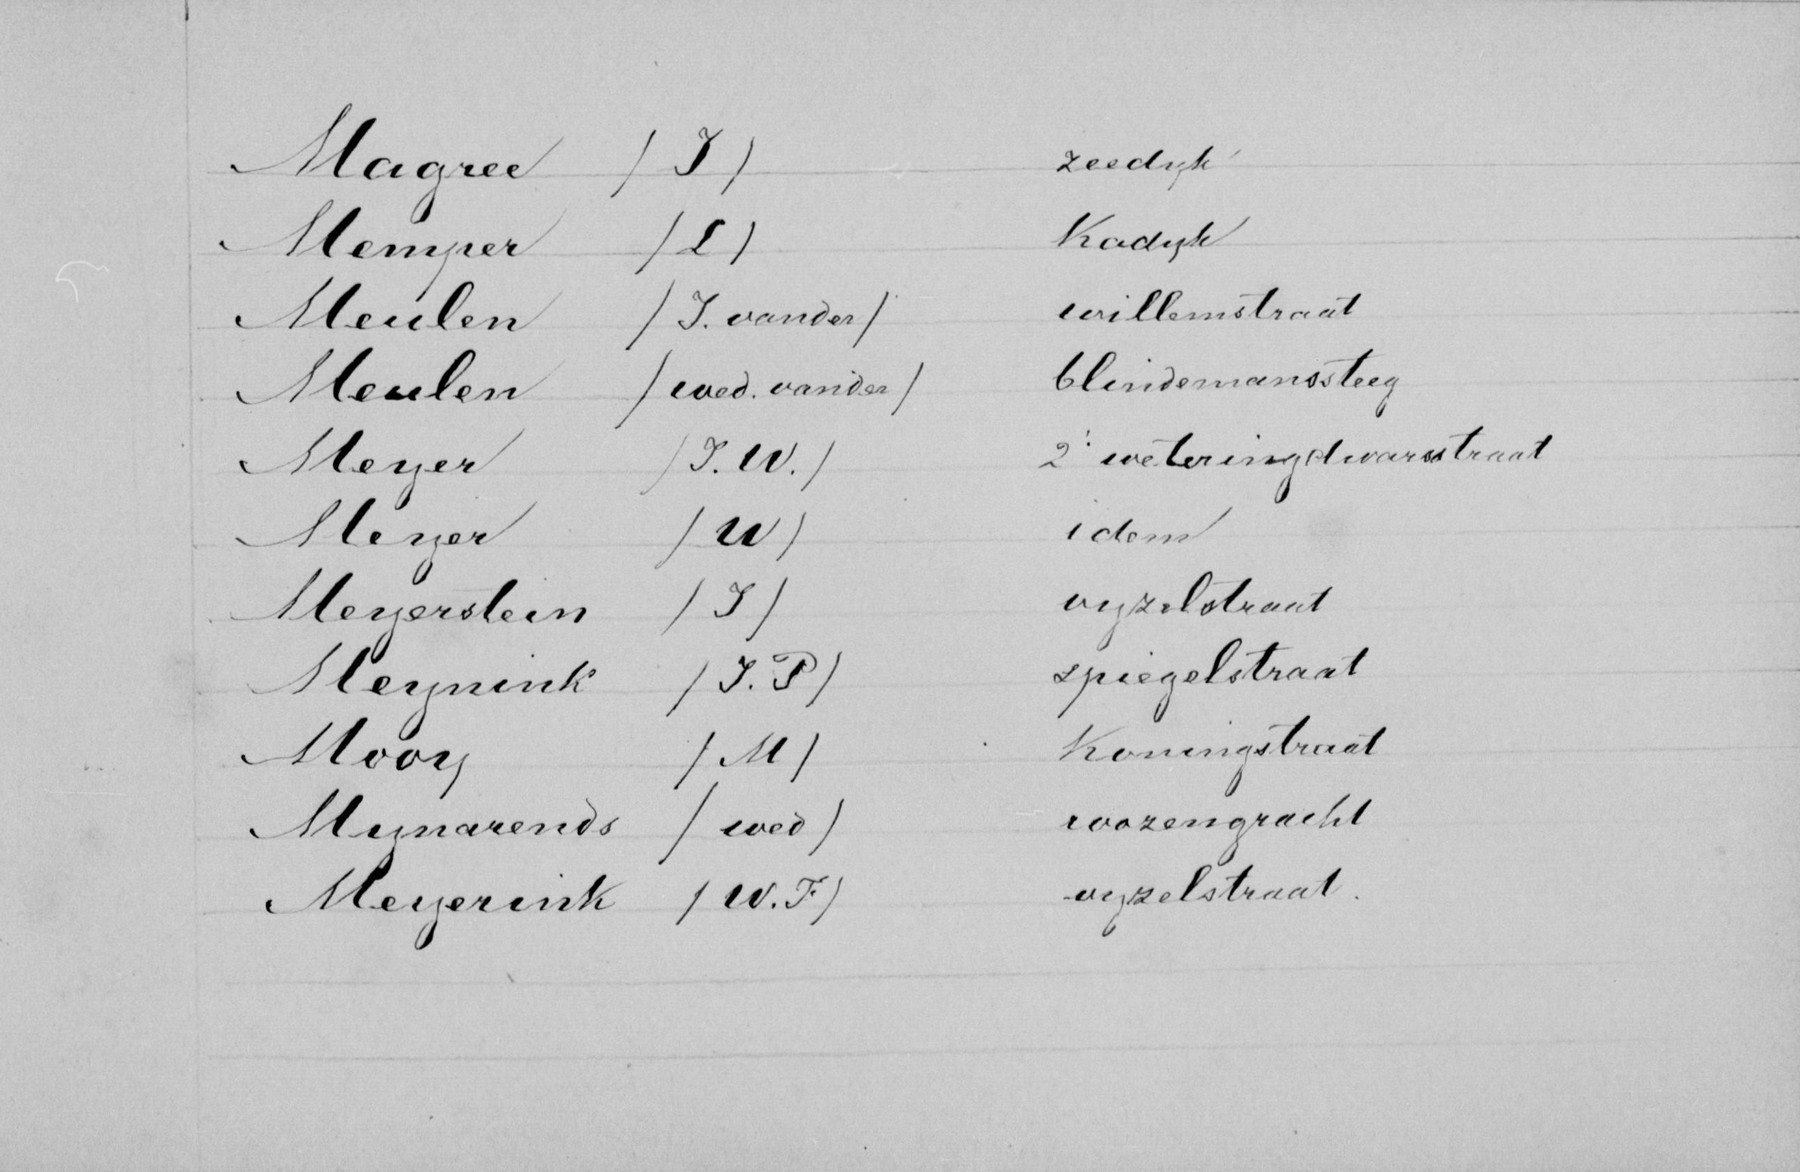 Magree / J / zeedyk
Memper / L / Kadyk
Meulen / J. vander / willemstraat
Meulen / wed. vander / blindemanssteeg
Meyer / J. W. / 2e weteringdwarsstraat
Meyer / W / idem
Meyerstein / J / vyzelstraat
Meynink / J. P / spiegelstraat
Mooy / M / Koningstraat
Mynarends / wed / roozengracht
Meyerink / W. F / vyzelstraat.